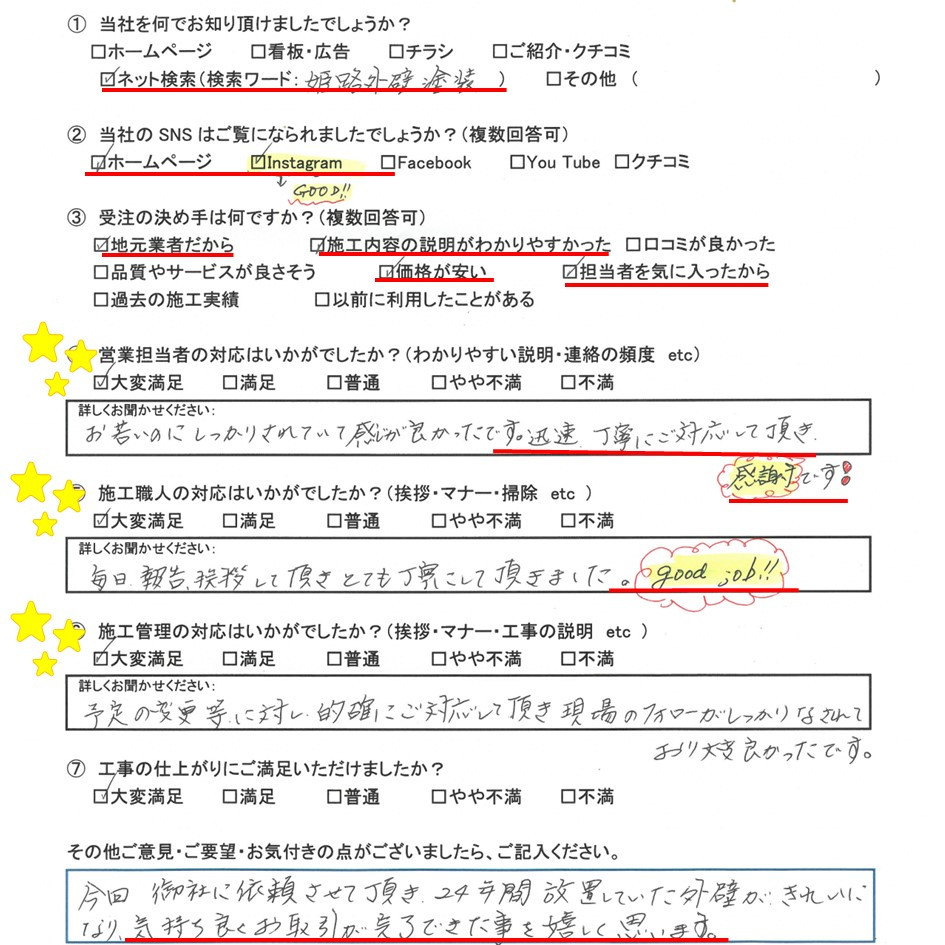 ① 当社を何でお知り頂けましたでしょうか？
□ホームページ □看板・広告 □チラシ □ご紹介・クチコミ
☑ネット検索（検索ワード： 姫路外壁塗装 ） □その他（ ）
② 当社の SNS はご覧になられましたでしょうか？（複数回答可）
☑ホームページ ☑Instagram □Facebook □You Tube □クチコミ
↓
GOOD!!
③ 受注の決め手は何ですか？（複数回答可）
☑地元業者だから ☑施工内容の説明がわかりやすかった □口コミが良かった
□品質やサービスが良さそう ☑価格が安い ☑担当者を気に入ったから
□過去の施工実績 □以前に利用したことがある
営業担当者の対応はいかがでしたか？（わかりやすい説明・連絡の頻度 etc）
☑大変満足 □満足 □普通 □やや不満 □不満
詳しくお聞かせください：
お若いのにしっかりされていて感じが良かったです。迅速、丁寧にご対応して頂き、
感謝です!
施工職人の対応はいかがでしたか？（挨拶・マナー・掃除 etc ）
☑大変満足 □満足 □普通 □やや不満 □不満
詳しくお聞かせください：
毎日、報告、挨拶して頂きとても丁寧にして頂きました。good job!!
施工管理の対応はいかがでしたか？（挨拶・マナー・工事の説明 etc ）
☑大変満足 □満足 □普通 □やや不満 □不満
詳しくお聞かせください：
予定の変更等に対し、的確にご対応して頂き現場のフォローがしっかりなされて
おり大変良かったです。
⑦ 工事の仕上がりにご満足いただけましたか？
☑大変満足 □満足 □普通 □やや不満 □不満
その他ご意見・ご要望・お気付きの点がございましたら、ご記入ください。
今回 御社に依頼させて頂き、24年間放置していた外壁が、きれいに
なり、気持ち良くお取引が完了できた事を嬉しく思います。